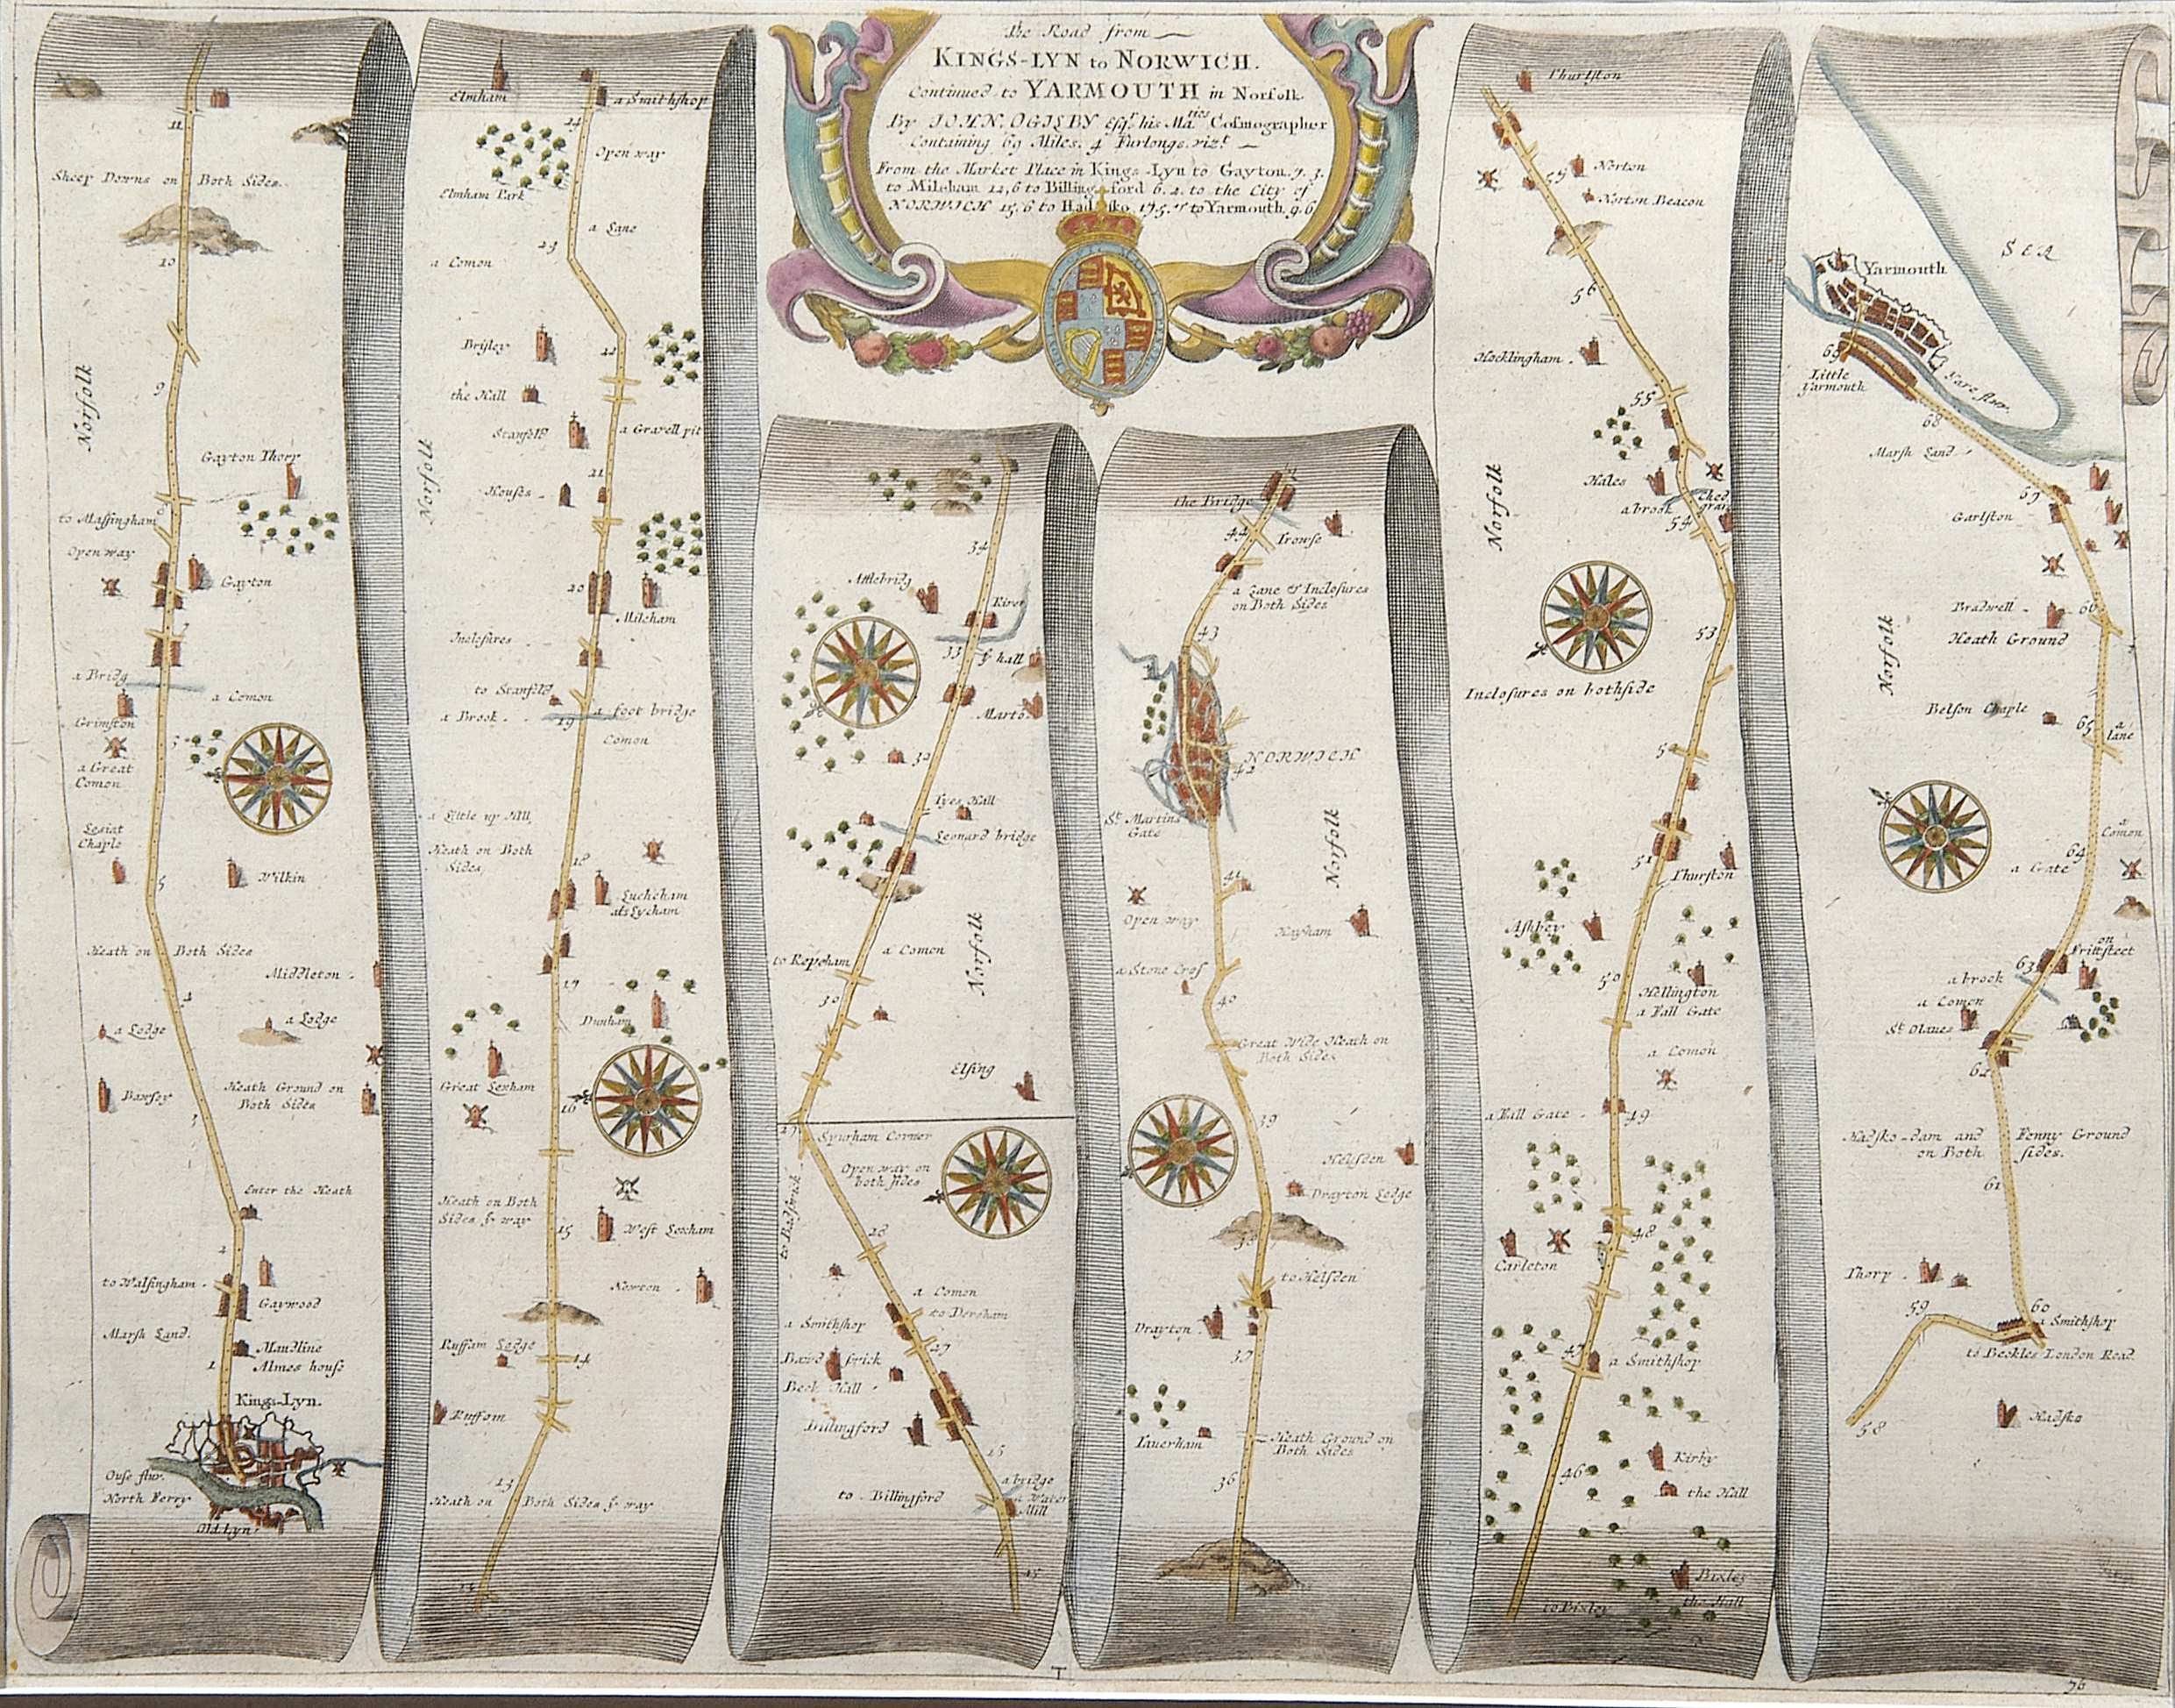 The Road from
KINGS-LYN to NORWICH.
Continued to YARMOUTH in Norfolk.
By JOHN OGILBY Esqr. his Ma.ties Cosmographer
Containing 69 Miles. 4 Furlongs. vizt.
From the Market Place in Kings-Lyn to Gayton. 7. 3.
to Mileham 12,6 to Billingsford 6. 2. to the City of
NORWICH 15.6 to Hadsko. 17.5. & to Yarmouth. 9.6
11
Sheep Downs on Both Sides.
10
Norfolk
9
Gayton Thorp
to Massingham
8
Open way
Gayton
7
a Bridg
a Comon
Grimston
a Great
Comon
Lesiat
Chaple
Wilkin
5
Heath on Both Sides
Middleton
4
a Lodge
a Lodge
Bawsey
Heath Ground on
Both Sides
3
Enter the Heath
2
to Walsingham
Gaywood
Marsh Land.
Maudline
Almes house
1
Kings-Lyn.
Ouse fluv.
North Ferry
Old Lyn.
Elmham
a Smithshop
24
Open way
Elmham Park
a Lane
23
a Comon
Brisley
22
the Hall
Stanfeld
a Gravell pit
Norfolk
21
Houses
20
Mileham
Inclosures
to Stanfeld
a Brook
19
a foot bridge
Comon
a Little up Hill
Heath on Both
Sides
18
Lucheham
als Lycham
17
Dunham
Great Lexham
16
Heath on Both
Sides ye way
15
West Lexham
Norton
Ruffam Lodge
14
Ruffom
13
Heath on Both Sides ye way
34
Attlebridg
River
33
ye hall
Marto.
32
Iyes Hall
Leonard bridge
Norfolk
to Repeham
a Comon
30
Elsing
29
Syurham Corner
Open way on
both sides
28
a Comon
to Dereham
a Smithshop
27
Beck Hall
Billingford
a bridge
a Water
Mill
to Billingford
25
the Bridge
44
Trowse
a Lane & Inclosures
on Both Sides
43
NORWICH
42
St. Martins
Gate
Norfolk
41
Open way
Hayham
a Stone Cros
40
Great Wide Heath on
Both Sides
39
Helesden
Drayton Lodge
38
to Helsden
Drayton
37
Taverham
Heath Ground on
Both Sides
36
Thurlston
Norton
Norton Beacon
56
Hocklingham
55
Hales
Ched
grave
a brook
54
Norfolk
53
Inclosures on bothside
51
Thurston
Ashbey
50
Hellington
a Fall Gate
a Comon
a Fall Gate
49
48
Carleton
47
a Smithshop
46
Kirby
the Hall
Bixley
the Hall
to Bixley
Sea
Yarmouth
69
Little
Yarmouth
Yare fluv.
68
Marsh Land
67
Garlston
Bradwell
66
Heath Ground
Norfolk
Belson Chaple
65
a
lane
a
Comon
64
a Gate
Frittsteet
on
63
a brook
a Comon
St. Olaves
62
Hadsko-dam and Fenny Ground
on Both sides.
61
Thorp
59
60
a Smithshop
to Beckles London Road
58
Hadsko
T
76